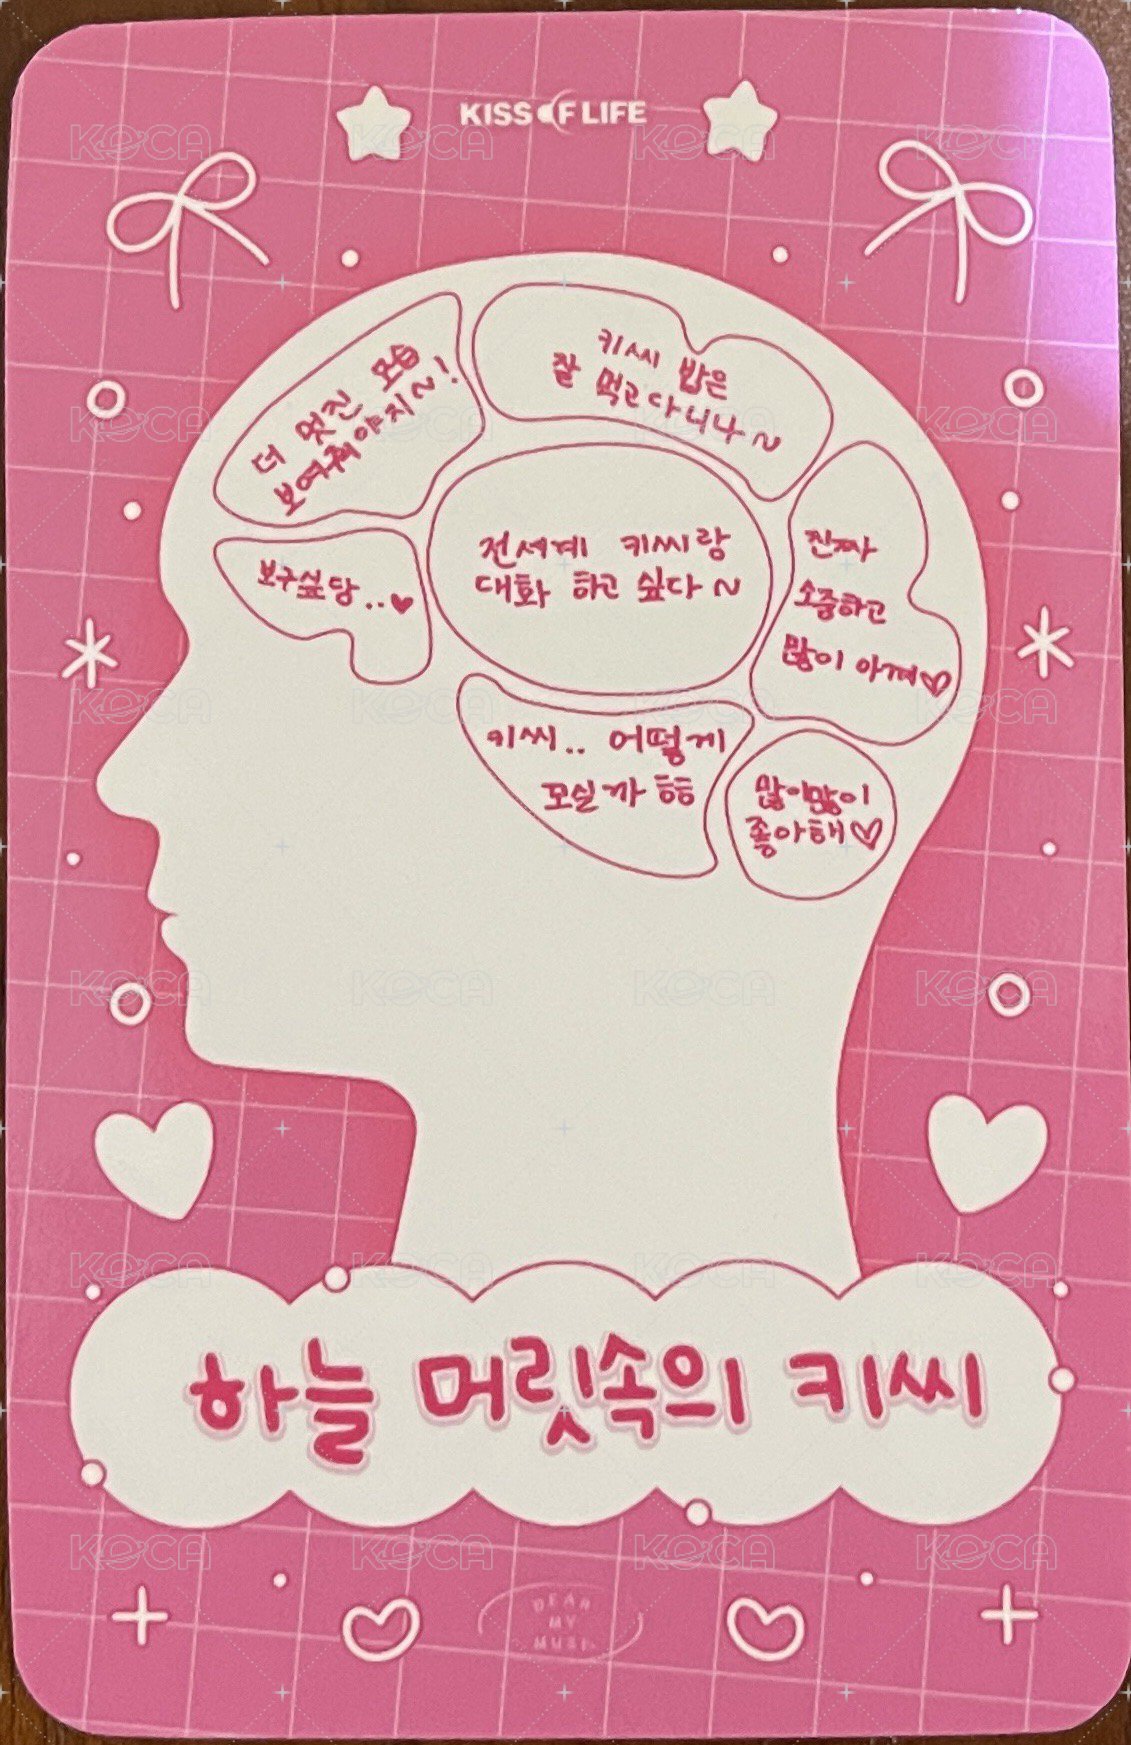 KISS OF LIFE
더 멋진 모습
보여줘야지~!
키씨 밥은
잘 먹고 다니나~
전세계 키씨랑
대화 하고 싶다~
보구싶당..♥
진짜
소중하고
많이 아껴♡
키씨.. 어떻게
모실까 흠흠
많이많이
좋아해♡
하늘 머릿속의 키씨
DEAR
MY
MUSE
KOCA